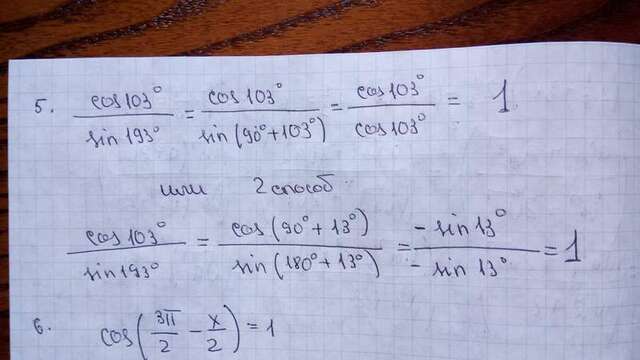 5. cos103° / sin193° = cos103° / sin(90°+103°) = cos103° / cos103° = 1
или 2 способ
cos103° / sin193° = cos(90°+13°) / sin(180°+13°) = -sin13° / -sin13° = 1
6. cos(3π/2 - x/2) = 1